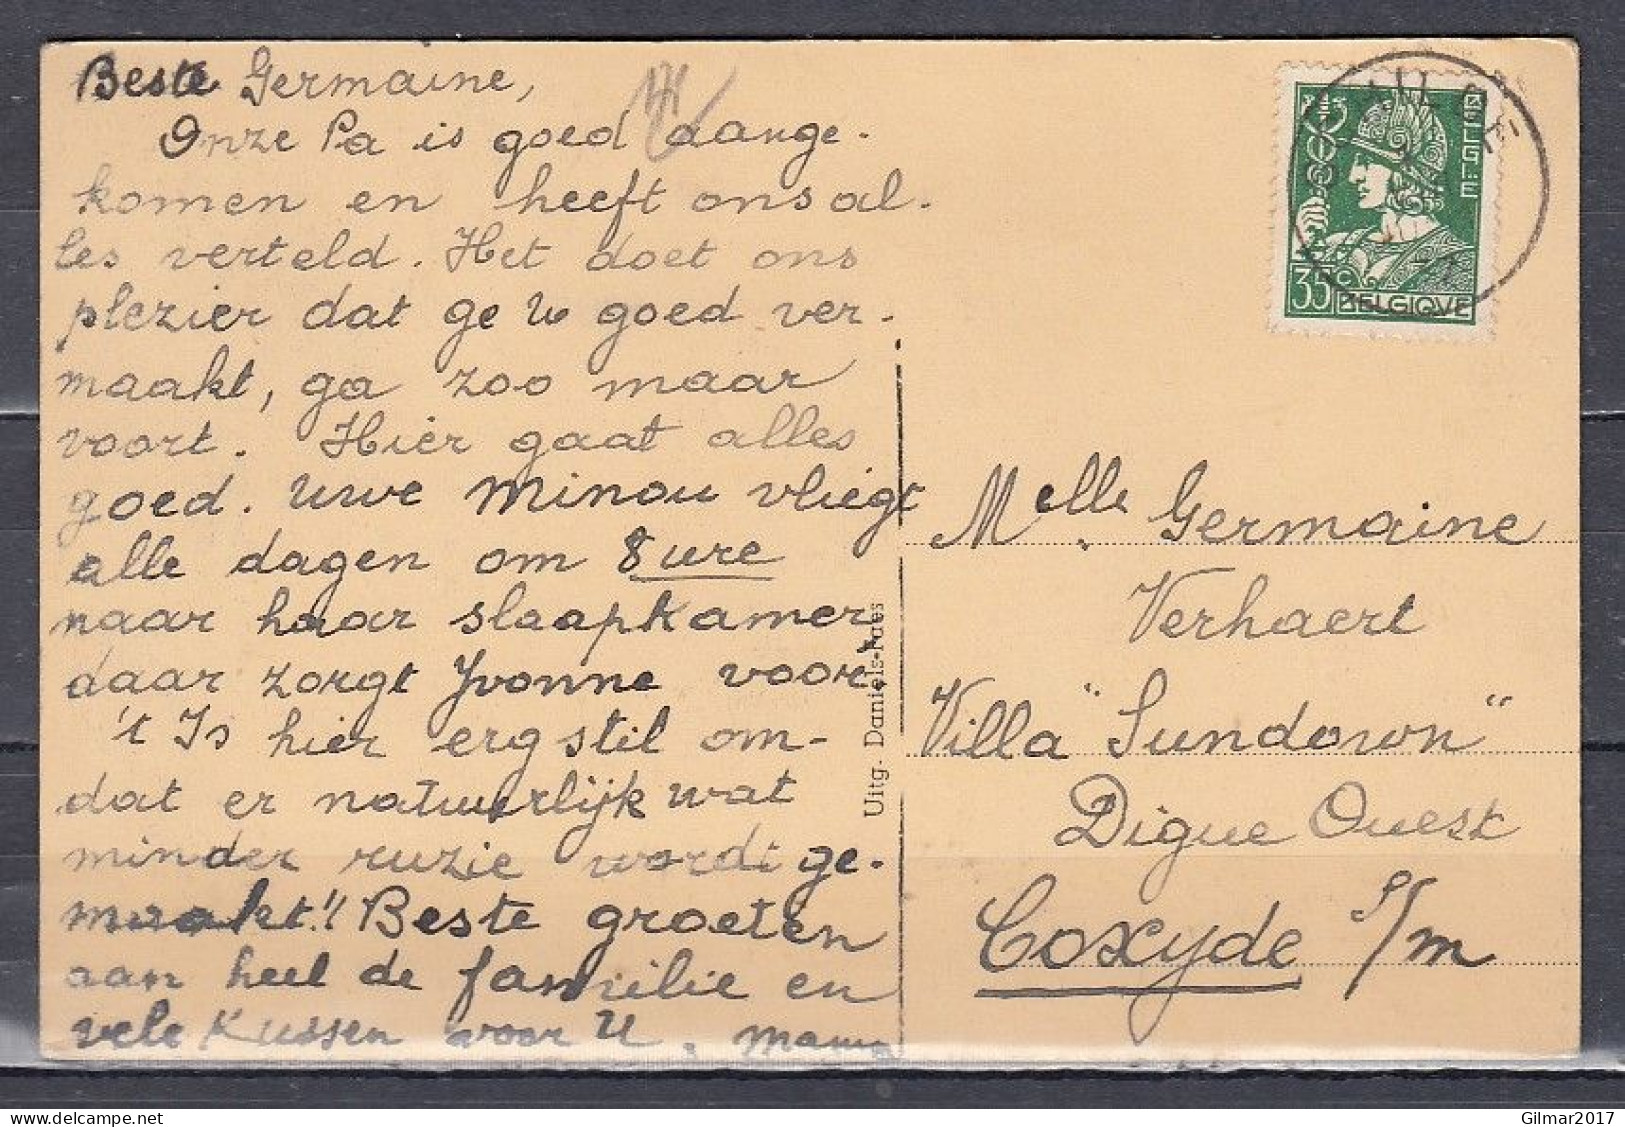 Beste Germaine,
Onze Pa is goed aange-
komen en heeft ons al-
les verteld. Het doet ons
plezier dat ge U goed ver-
maakt, ga zoo maar
voort. Hier gaat alles
goed. Uwe Minou vliegt
alle dagen om 8 ure
naar haar slaapkamer,
daar zorgt Yvonne voor.
't Is hier erg stil om-
dat er natuurlijk wat
minder ruzie wordt ge-
maakt!! Beste groeten
aan heel de familie en
vele Kussen voor U. Mama
Uitg. Daniels-Faes
35
BELGIË
35c
BELGIQVE
Melle. Germaine
Verhaert
Villa "Sundown"
Digue Ouest
Coxyde s/m
delcampe.net
Gilmar2017